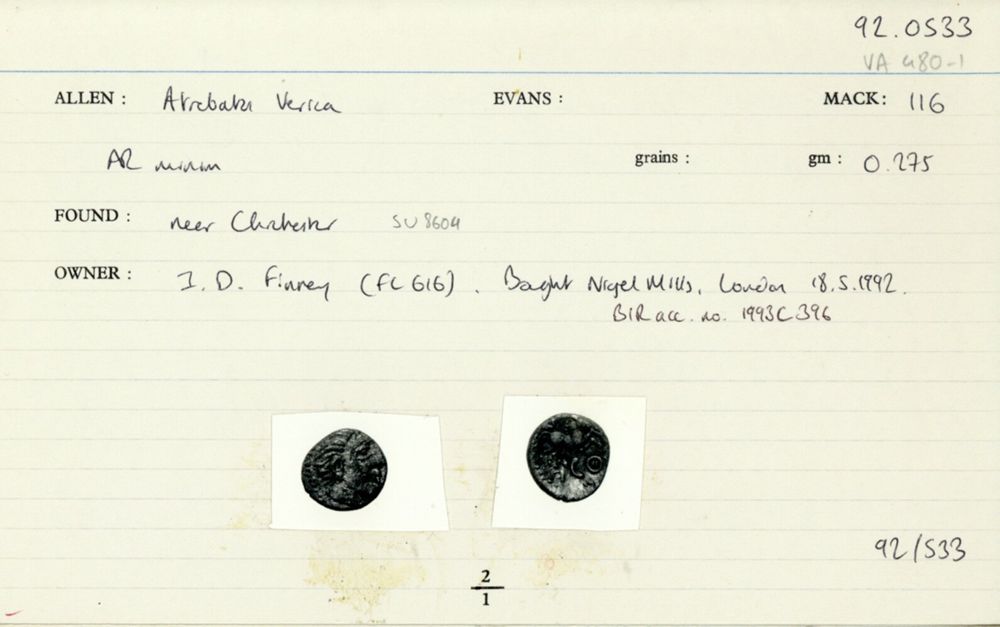 92.0533
VA 480-1
ALLEN : Atrebates Verica EVANS : MACK: 116
AR minim grains : gm : 0.275
FOUND : near Chichester SU 8604
OWNER : I. D. Finney (FC 616). Bought Nigel Mills, London 18.5.1992.
BIR acc. no. 1993C396
92/533
2
1